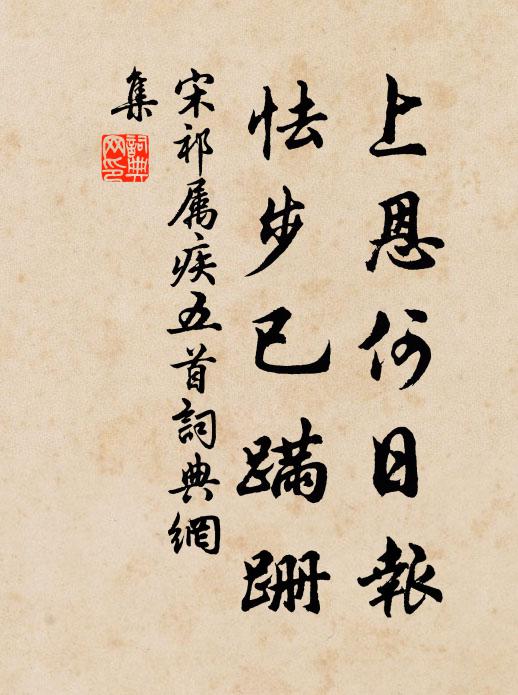 上恩何日報
怯步已蹣跚
宋祁属疾五首詞典網
集
詞典
网印